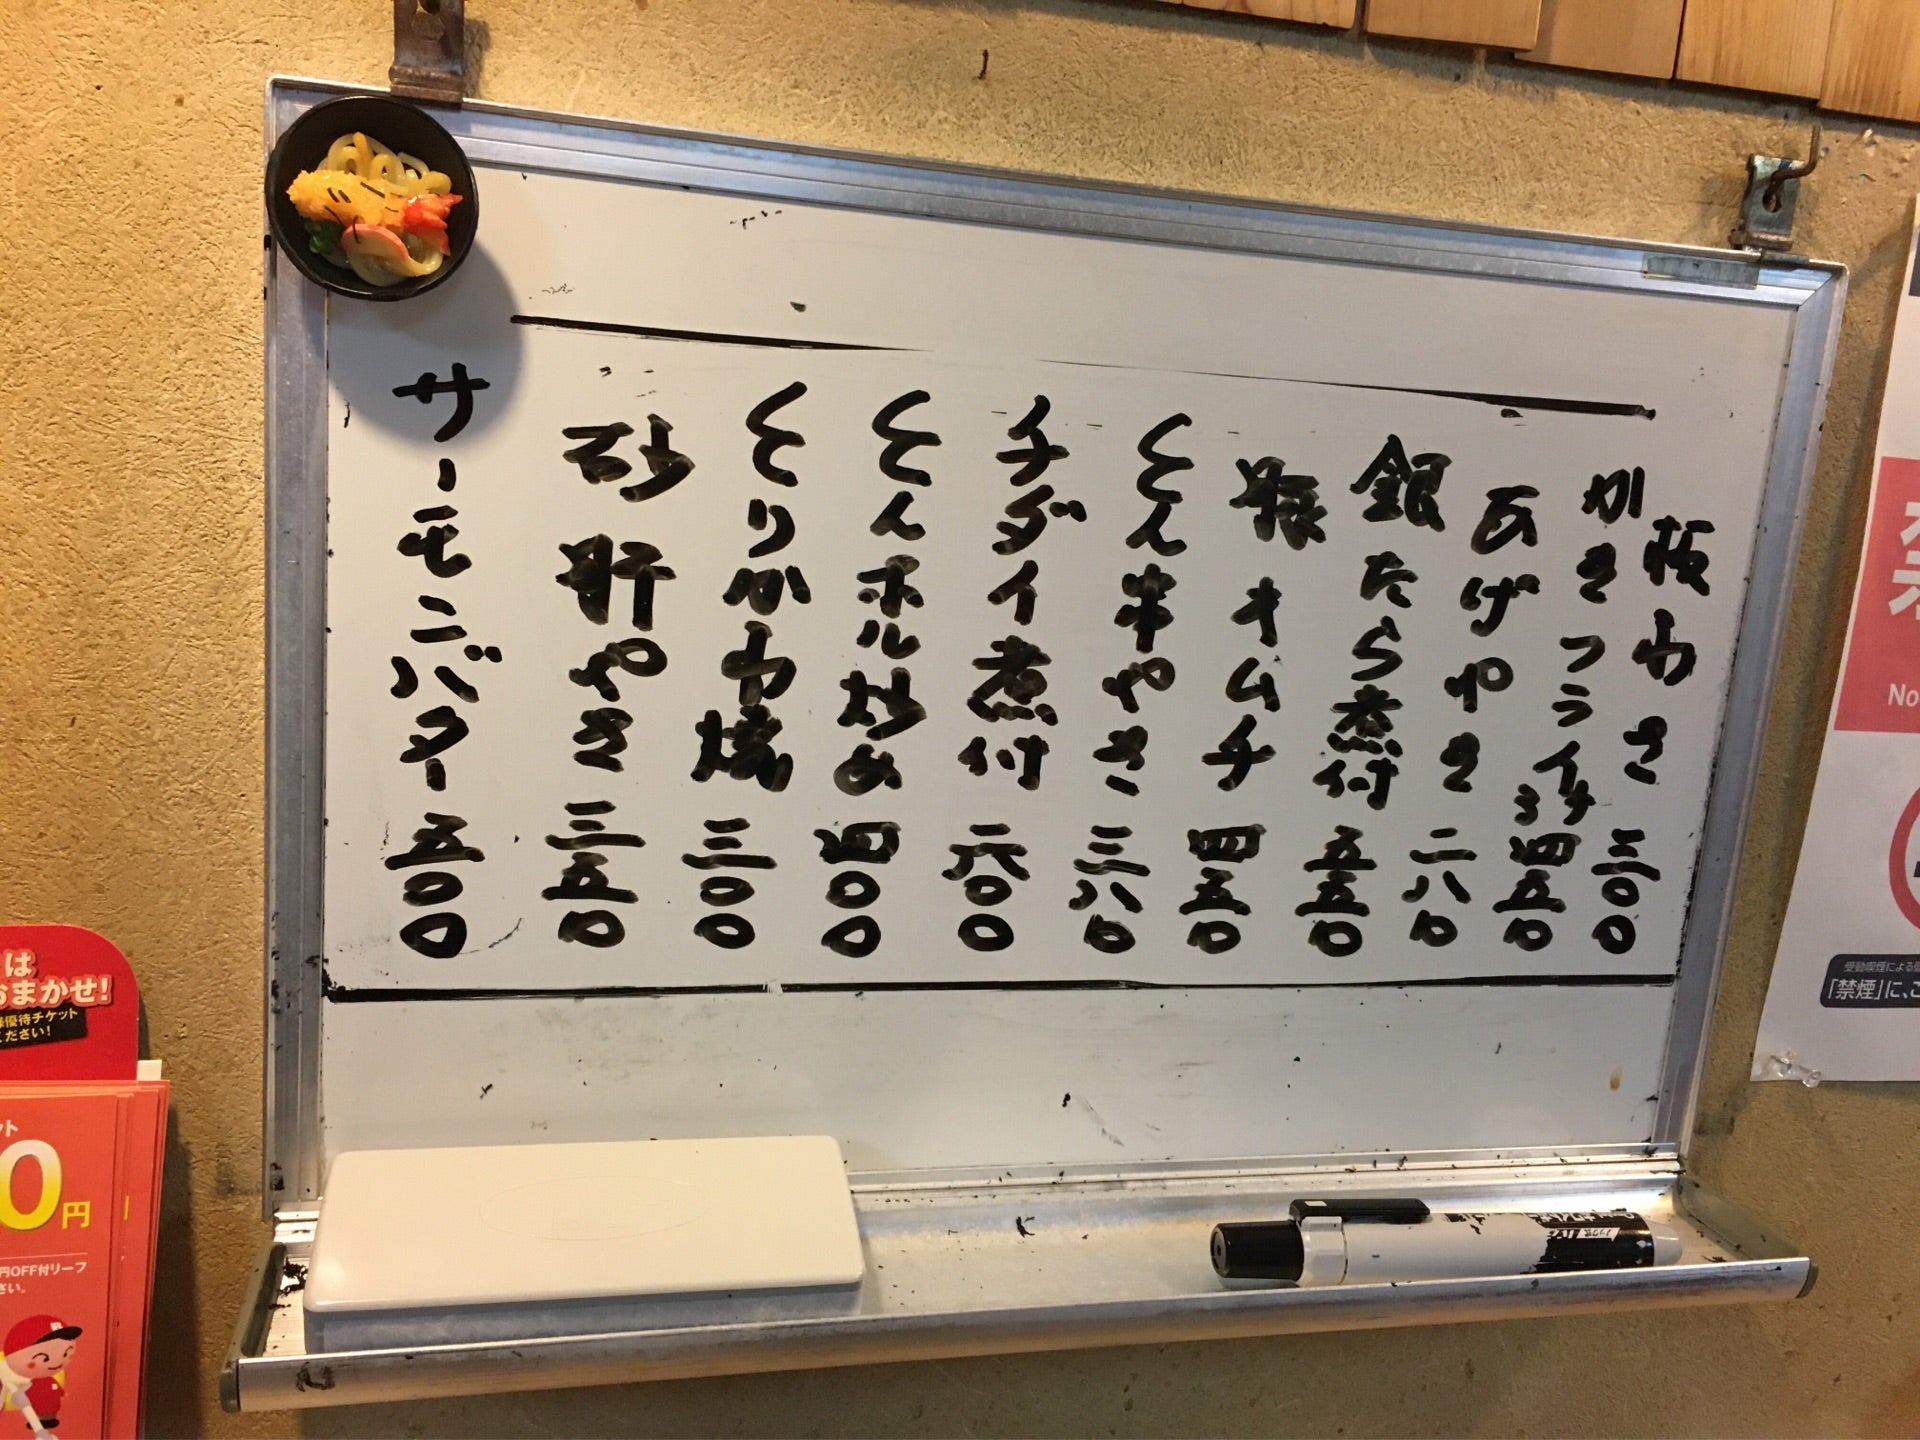 板わさ 三〇〇
かきフライ 四五〇
あげやき 二八〇
銀たら煮付 五五〇
豚キムチ 四五〇
とん串やき 三八〇
チダイ煮付 六〇〇
とんホル炒め 四〇〇
とりかわ焼 三〇〇
砂肝やき 三五〇
サーモンバター 五〇〇
は
おまかせ!
優待チケット
ください!
ット
0円
円OFF付リーフ
さい。
No
受動喫煙による
「禁煙」に、ご